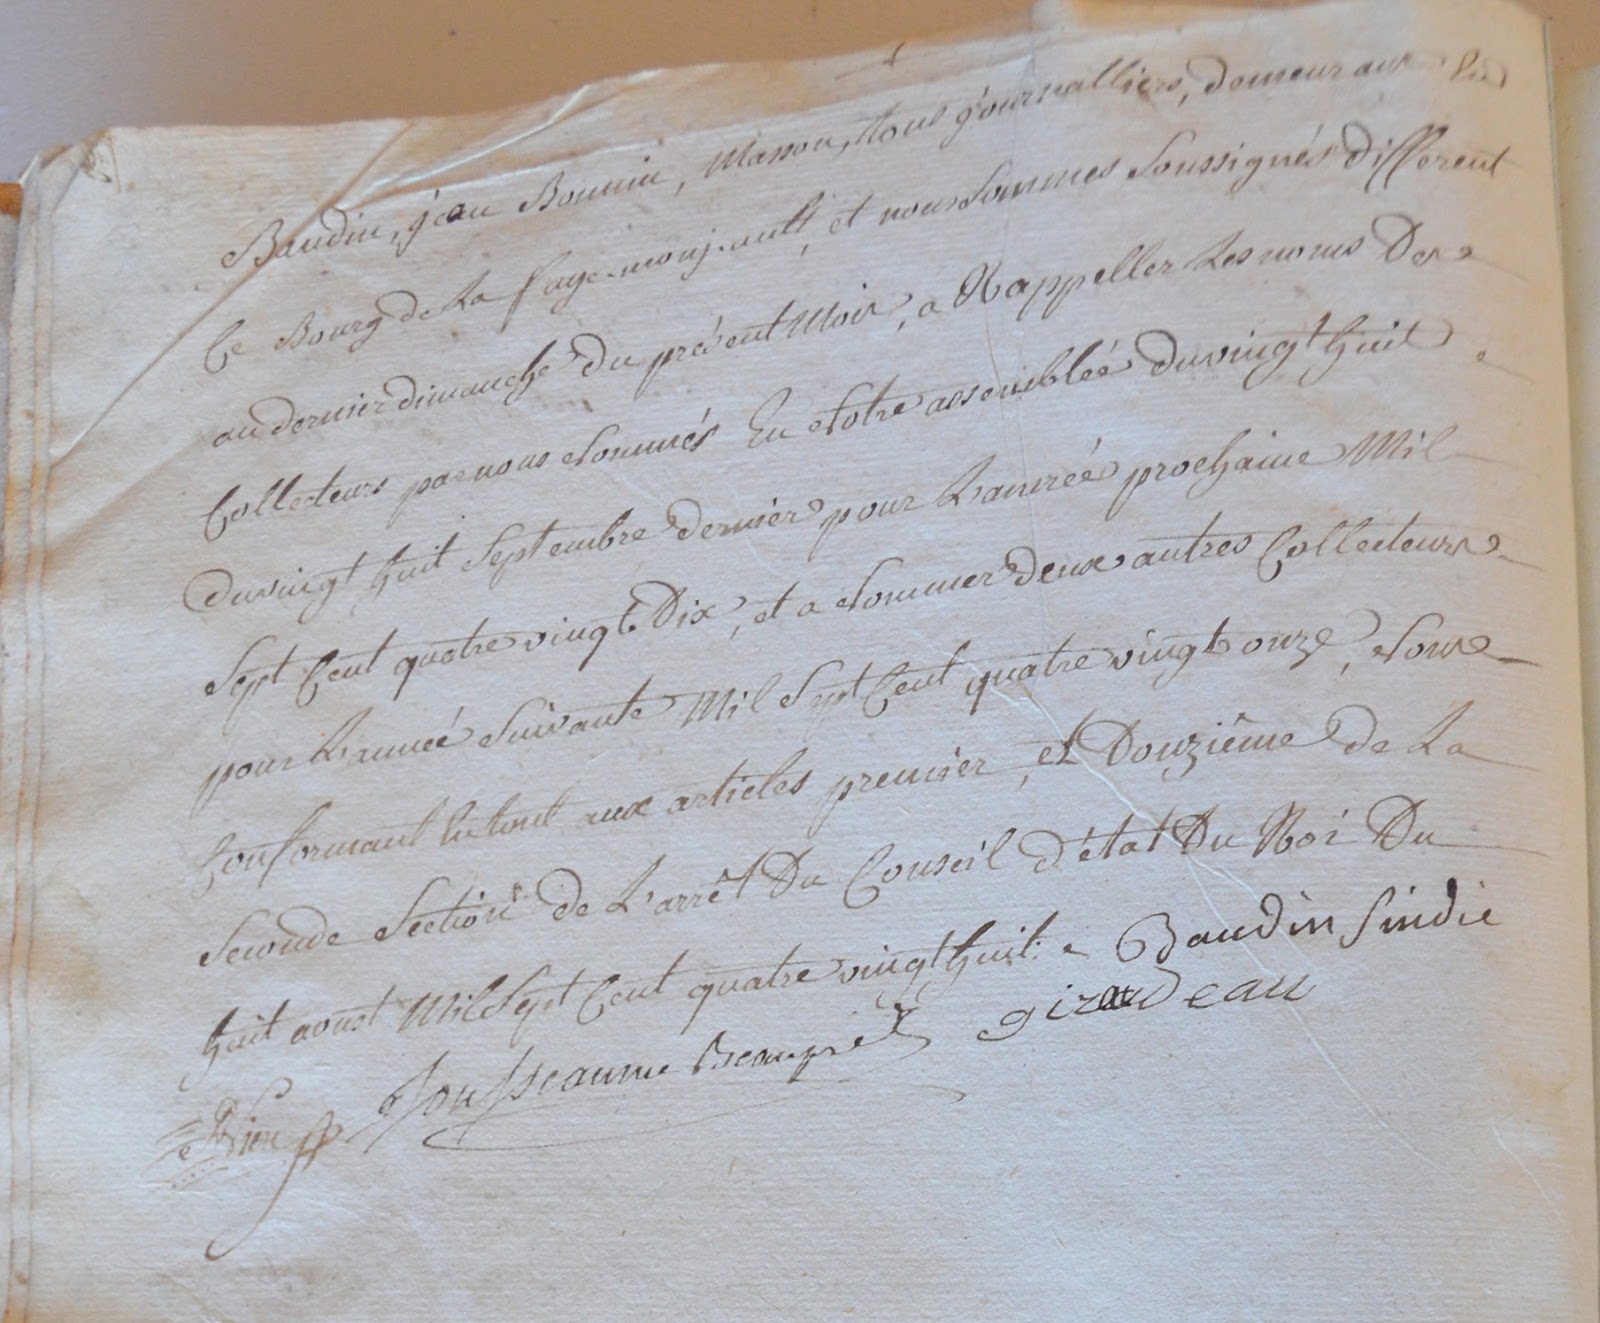 Baudin, jean Bonnin, Masson, tous journalliers, demeurant en
Ce Bourg de La foye-monjault, et nous sommes soussignés différent
au dernier dimanche du présent Mois, a Rappeller Les noms Des
Collecteurs par nous Nommés En Notre assembléé du vingt huit
du vingt huit Septembre dernier pour L'annéé prochaine Mil
Sept Cent quatre vingt Dix, et a Nommer deux autres Collecteurs
pour L'annéé Suivante Mil Sept Cent quatre vingt onze, Nous
Conformant En tout aux articles premier, et Douziême de La
Seconde Section de L'arrêt Du Conseil d'état Du Roi Du
huit aoust Mil Sept Cent quatre vingt huit. Baudin sindic
Jousseaume Beaupré giraudeau